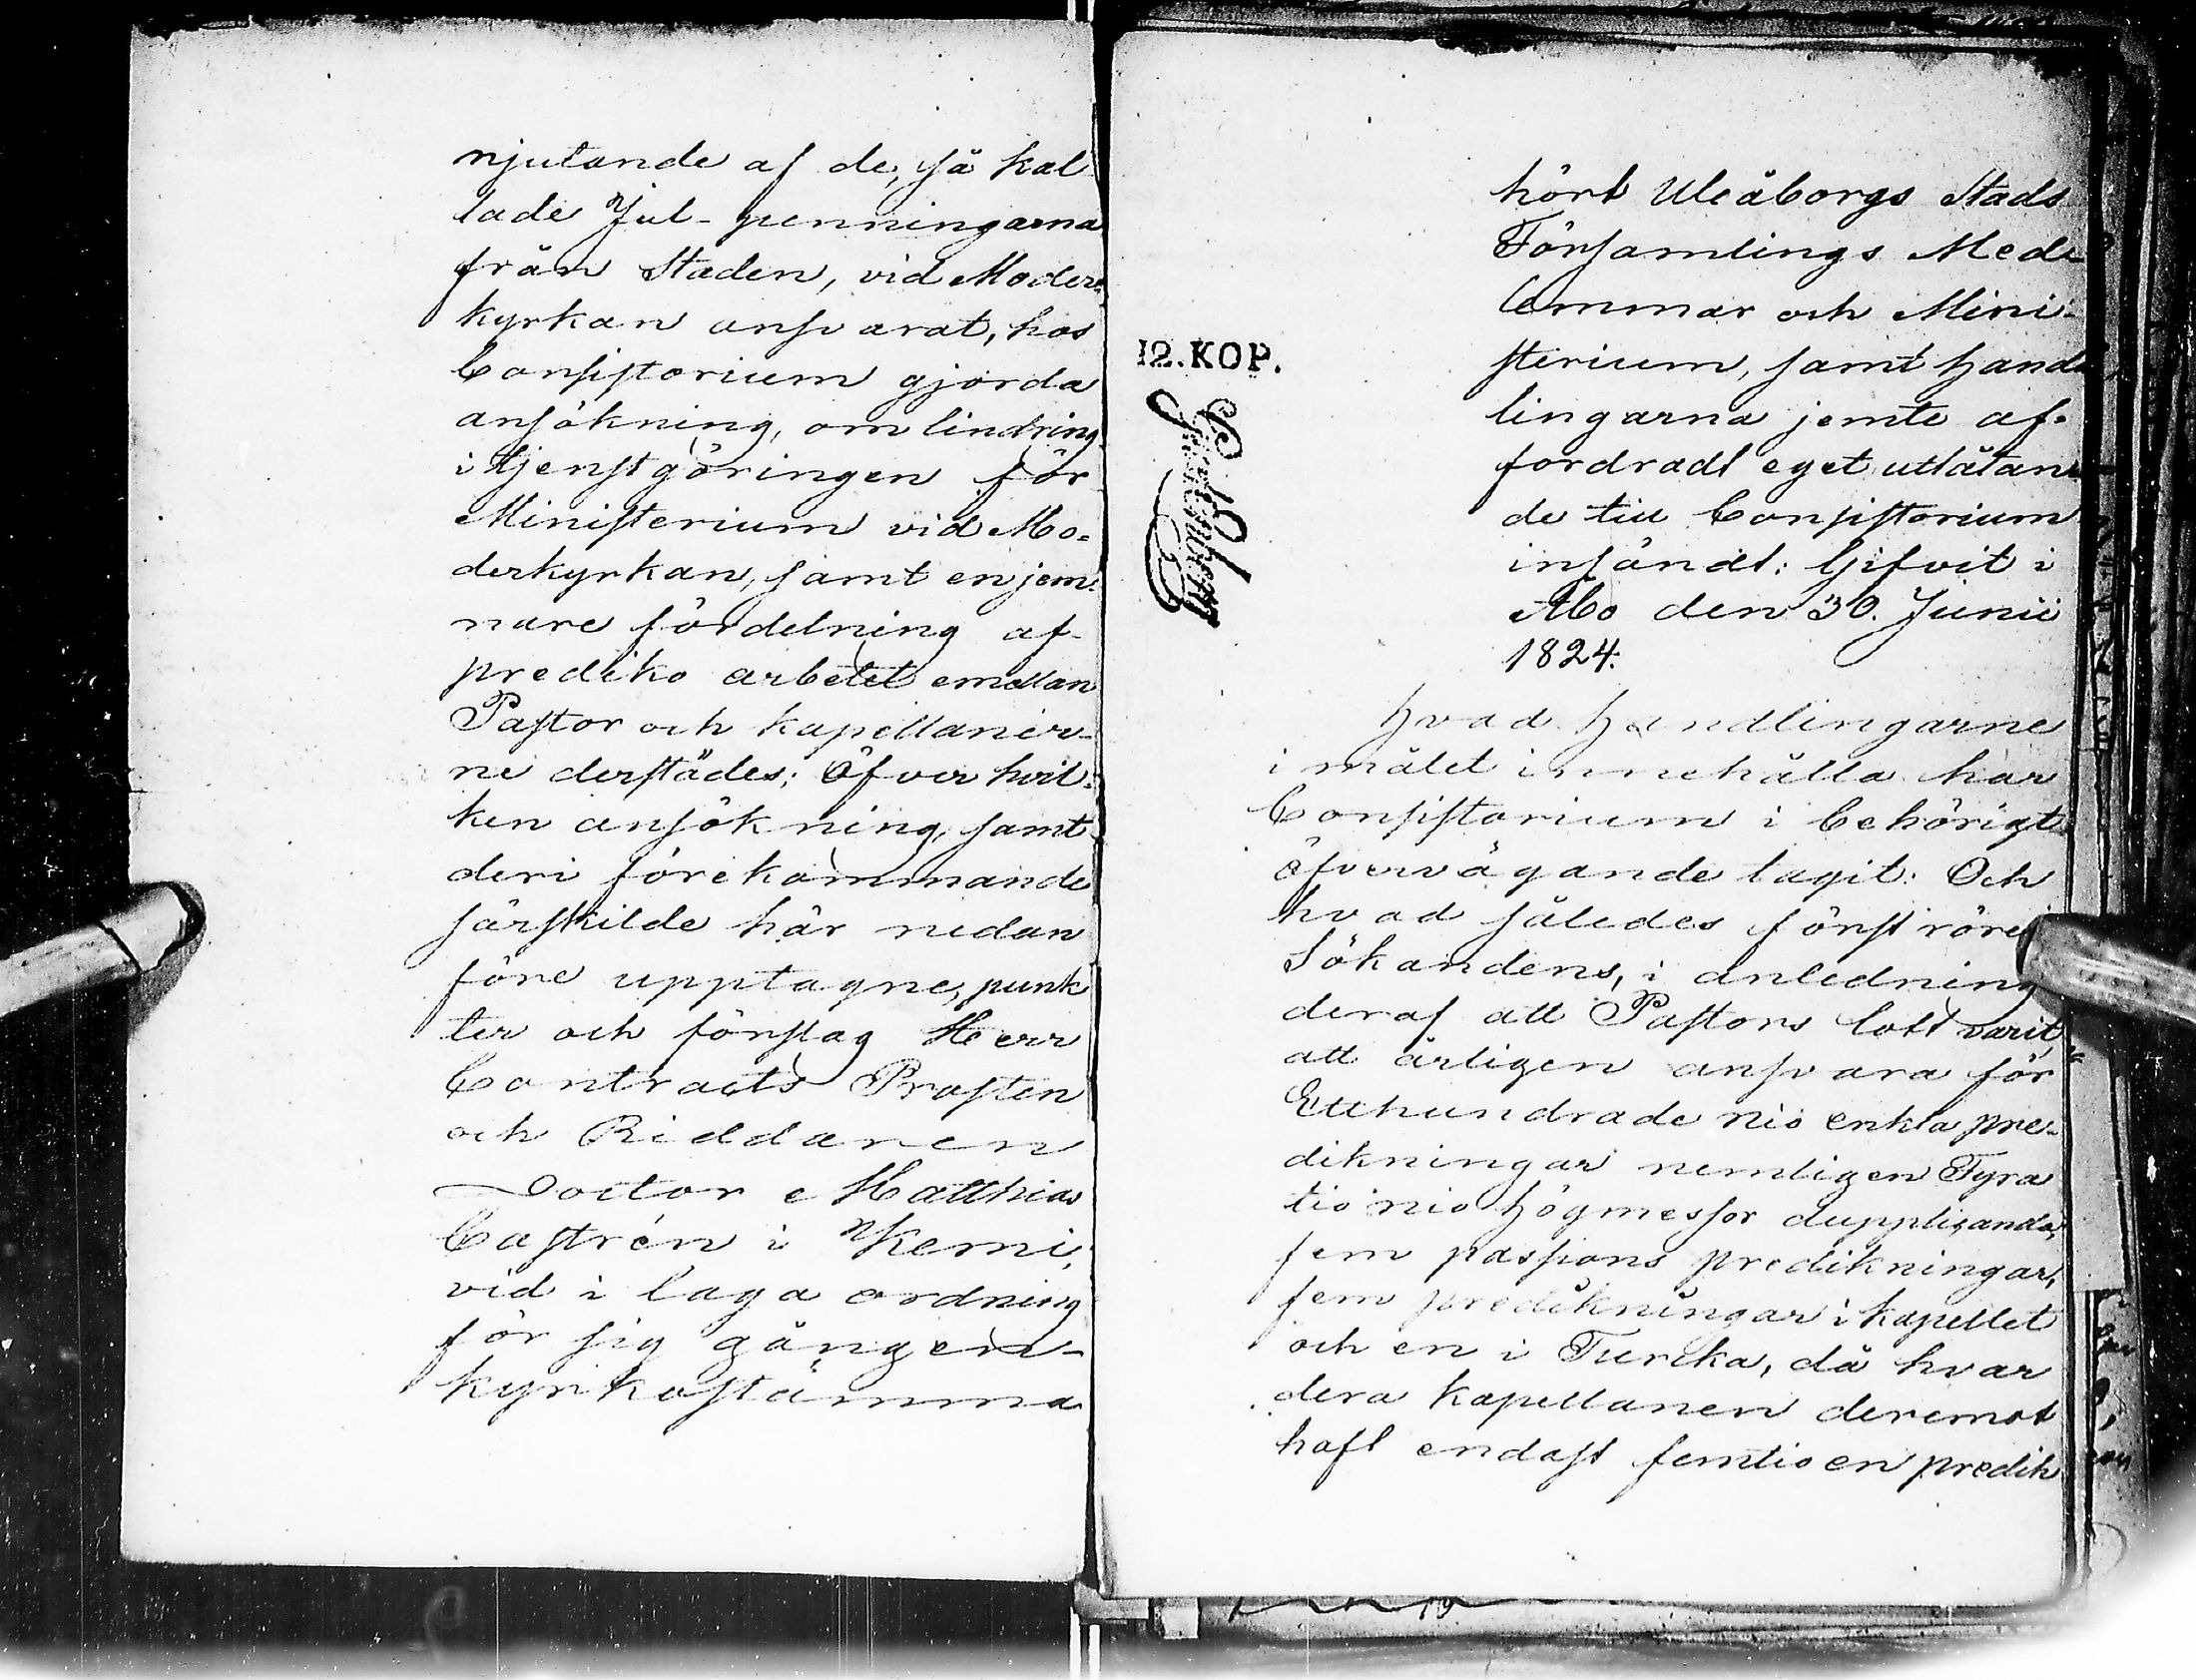 njutande af de, så kal
lade Jul-penningarna
från Staden, vid Moder-
kyrkan ansvarat, hos
Consistorium gjorda
ansökning, om lindring
i tjenstgöringen för
Ministerium vid Mo-
derkyrkan, samt en jem-
nare fördelning af
prediko arbetet emellan
Pastor och kapellaner-
ne derstädes; Öfver hvil-
ken ansökning, samt
deri förekommande
särskilde här nedan
före upptagne, punk
ter och förslag Herr
Contracts Prosten
och Riddaren
Doctor Matthias
Castrén i Kemi,
vid i laga ordning
för sig gången
kyrkostämma
12. KOP.
hört Uleåborgs Stads
Församlings Mede
lemmar och Mini-
sterium, samt hand
lingarna jemte af-
fordradt eget utlåtan
de till Consistorium
insändt; Gifvit i
Åbo den 30. Junii
1824.
Hvad Handlingarne
i målet innehålla har
Consistorium i behörigt
öfvervägande tagit: Och
hvad således först rörer
Sökandens, i anledning
deraf att Pastors lott varit,
att årligen ansvara för
Etthundrade nio enkla pre-
dikningar nemligen Fyra
tio nio högmessor dupplicando,
fem passions predikningar,
fem predikningar i kapellet
och en i Turcka, då hvar
dera kapellanen deremot
haft endast femtio en predik